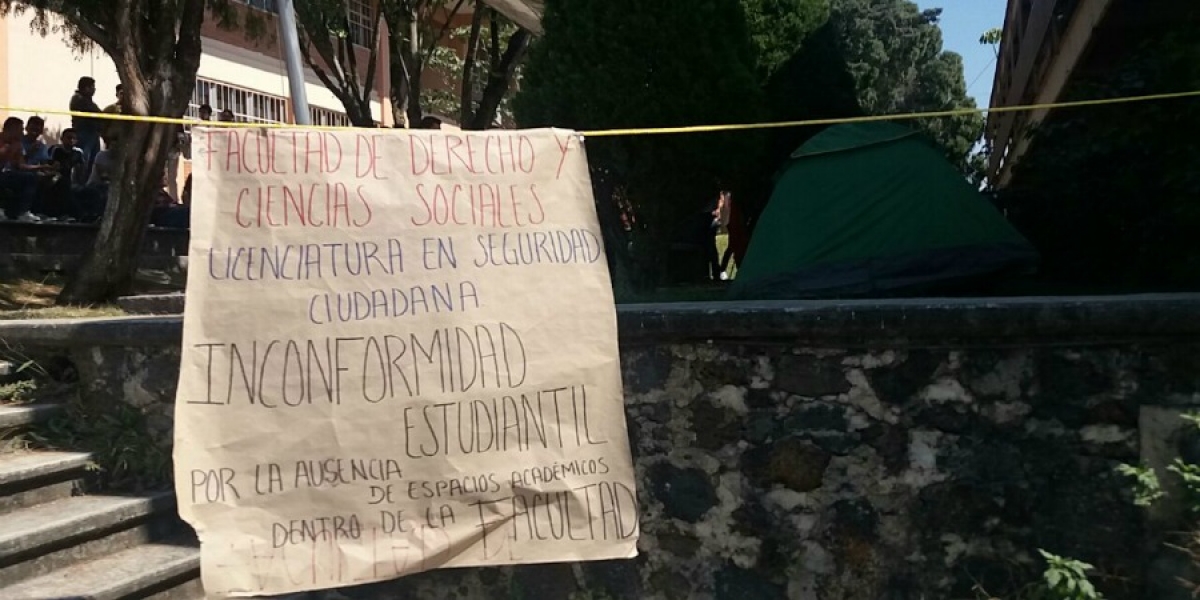 FACULTAD DE DERECHO Y
CIENCIAS SOCIALES
LICENCIATURA EN SEGURIDAD
CIUDADANA
INCONFORMIDAD
ESTUDIANTIL
POR LA AUSENCIA
DE ESPACIOS ACADÉMICOS
DENTRO DE LA FACULTAD